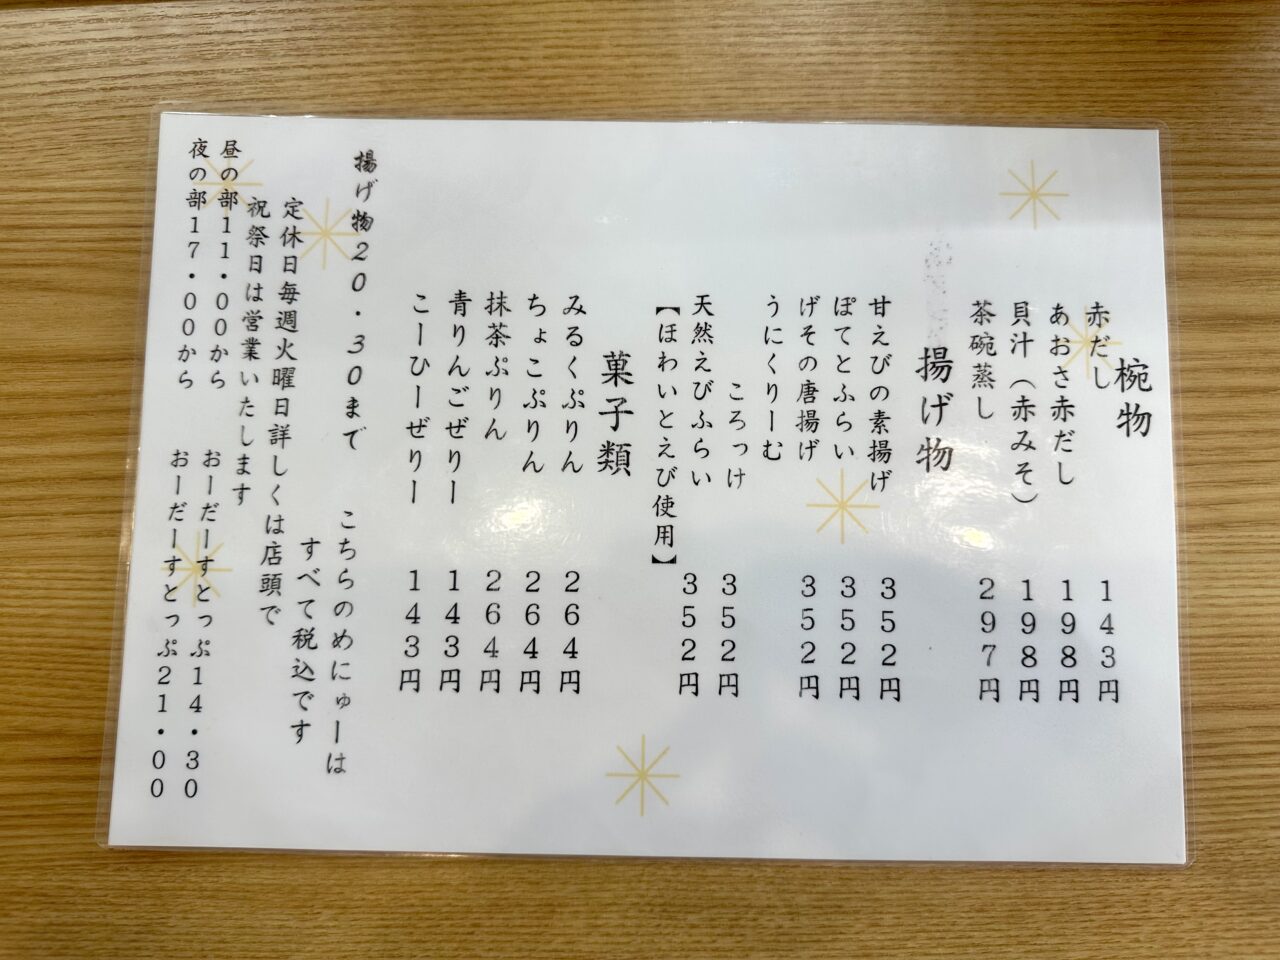 椀物
赤だし 143円
あおさ赤だし 198円
貝汁（赤みそ） 198円
茶碗蒸し 297円
揚げ物
甘えびの素揚げ 352円
ぽてとふらい 352円
げその唐揚げ 352円
うにくりーむ
ころっけ 352円
天然えびふらい 352円
【ほわいとえび使用】
菓子類
みるくぷりん 264円
ちょこぷりん 264円
抹茶ぷりん 264円
青りんごぜりー 143円
こーひーぜりー 143円
揚げ物20．30まで
こちらのめにゅーは
すべて税込です
定休日毎週火曜日詳しくは店頭で
祝祭日は営業いたします
昼の部11．00から おーだーすとっぷ14．30
夜の部17．00から おーだーすとっぷ21．00